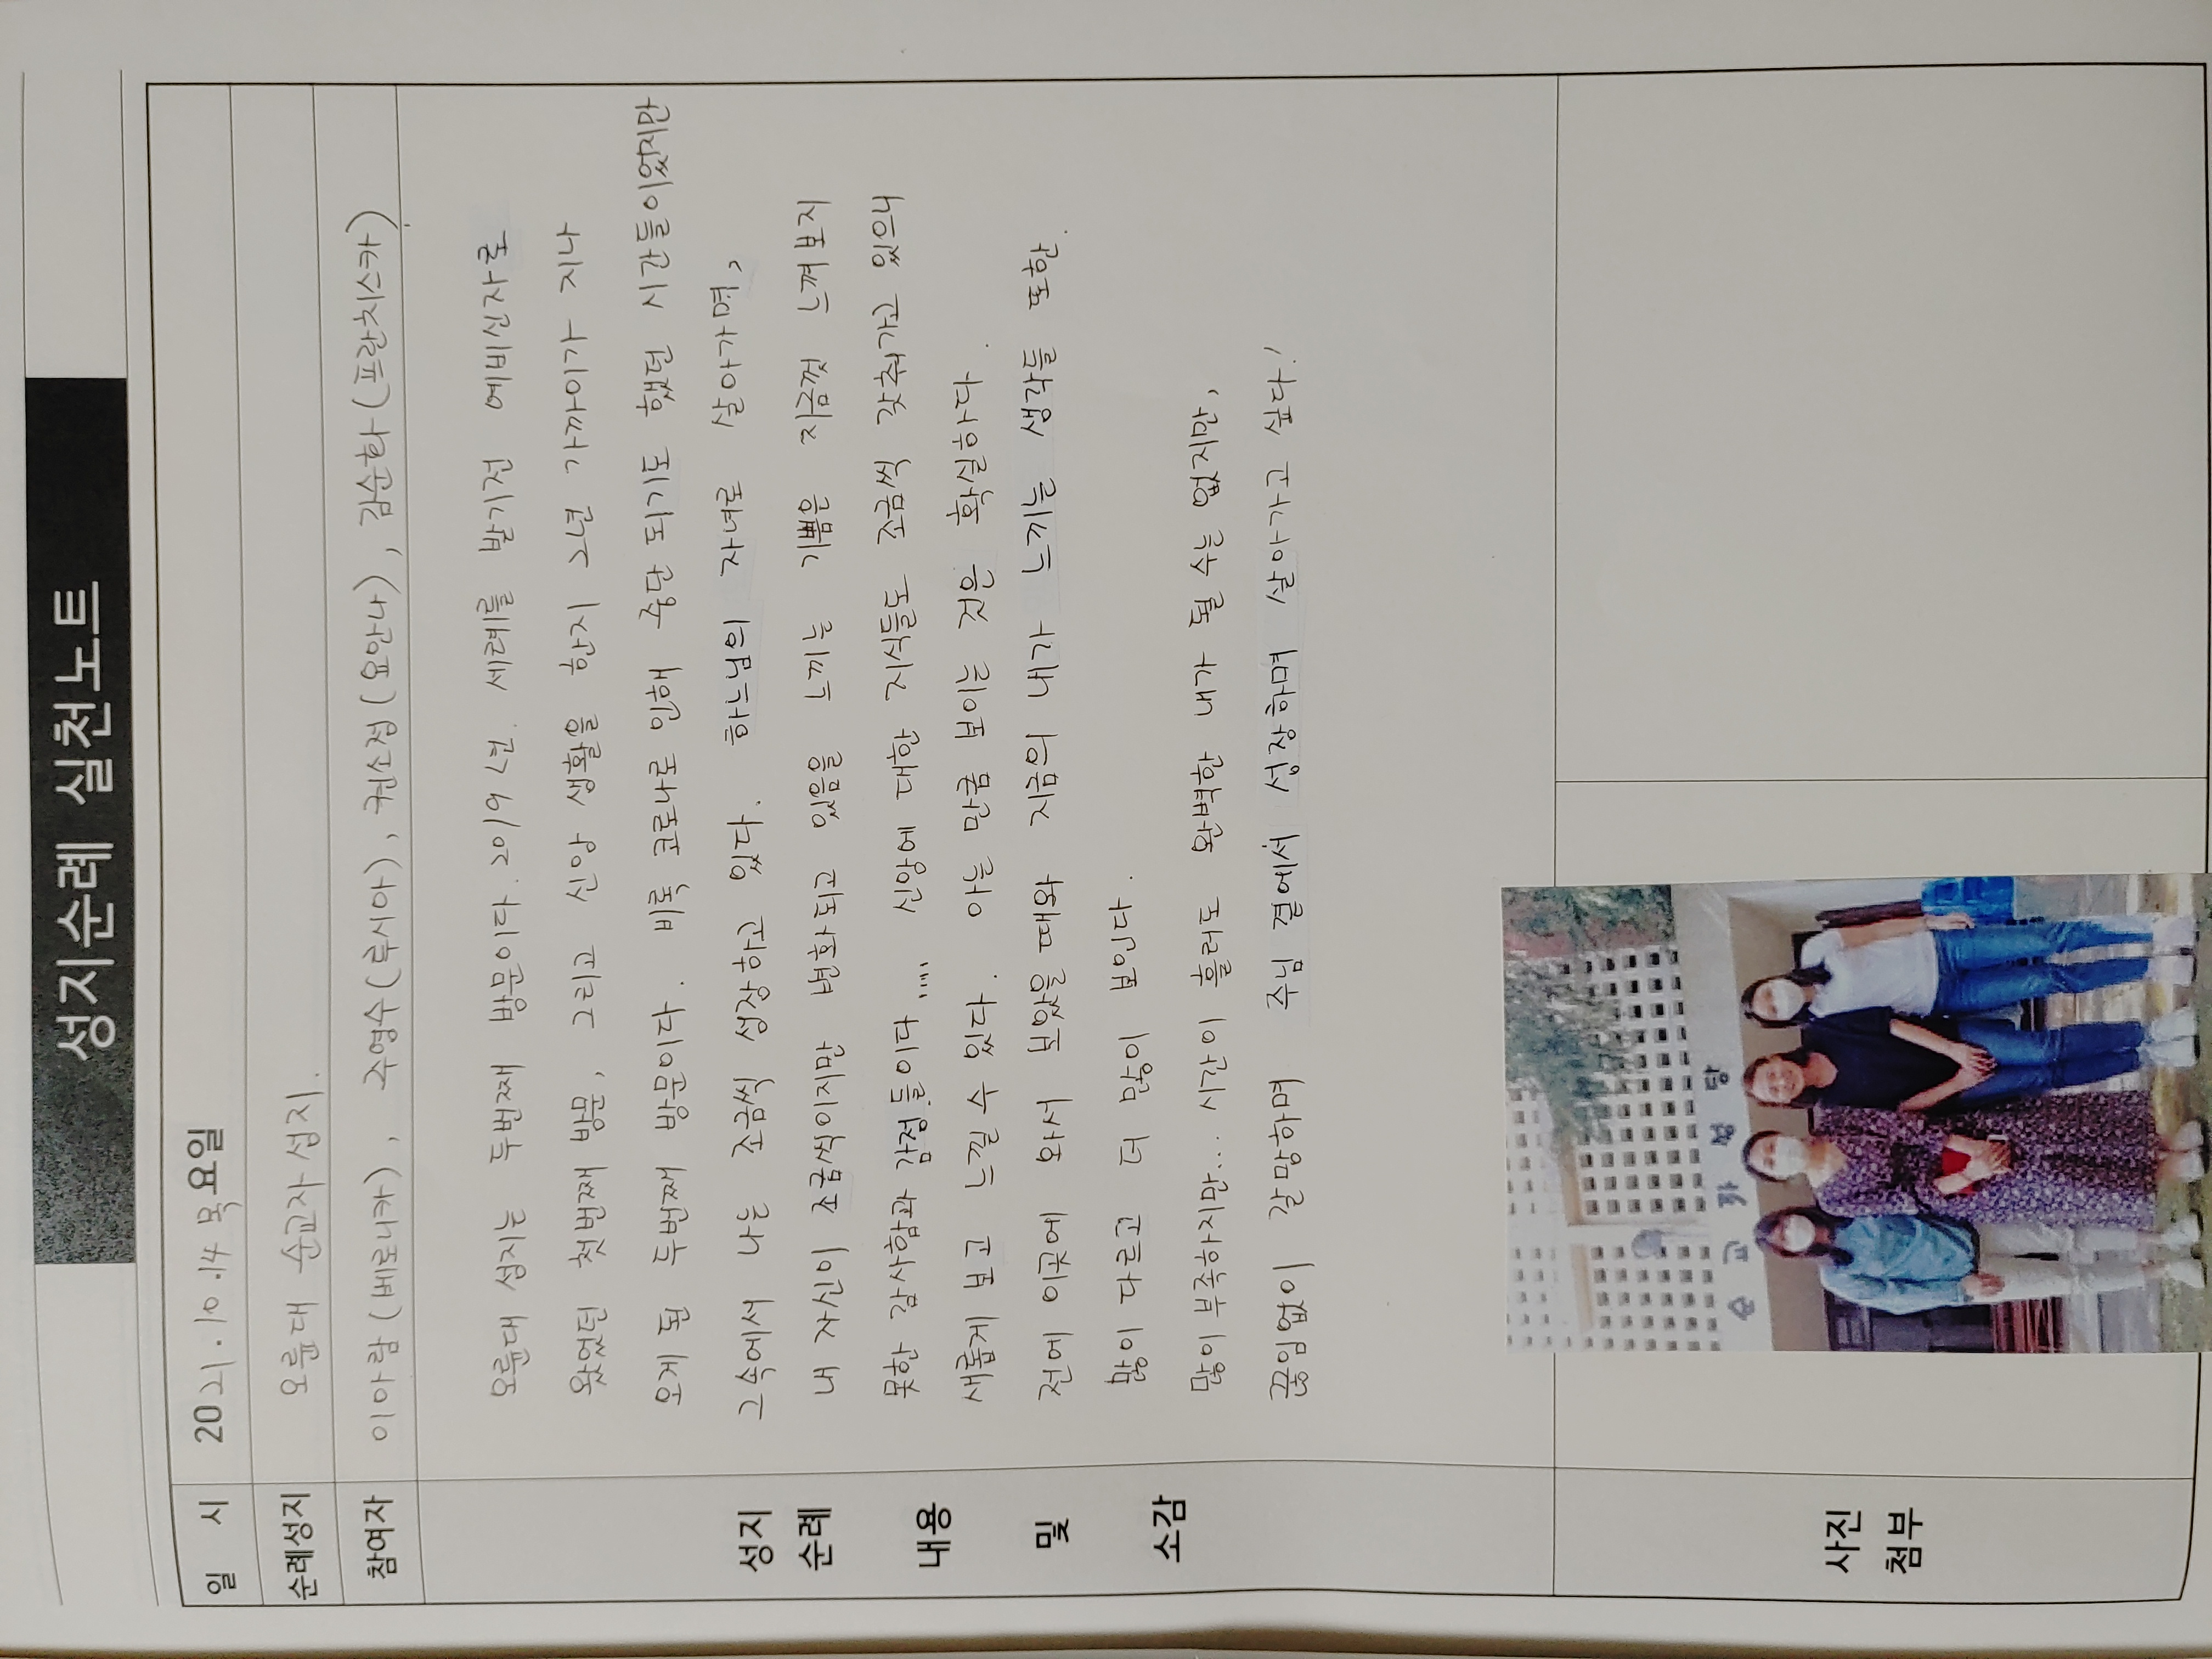 성지순례 실천노트
일 시 2021. 10. 14 목요일
순례성지 오륜대 순교자 성지.
참여자 이아람(베로니카), 주영수(루시아), 권소정(요안나), 감순화(프란치스카)
성지
순례
내용
및
소감
오륜대 성지는 두번째 방문이다. 2019년. 세례를 받기전 예비신자로
왔었던 첫번째 방문, 그리고 신앙 생활을 한지 2년 가까이가 지나
오게 된 두번째 방문이다. 비록 코로나로 인해 중단 되기도 했던 시간들이었지만
그속에서 나는 조금씩 성장하고 있다. 하느님의 자녀로 살아가며,
내 자신이 조금씩이지만 변화되고 있음을 느끼는 기쁨은 지금껏 느껴보지
못한 감사함과 감정들이다..... 신앙에 대한 지식들도 조금씩 갖춰가고 있으니
새롭게 보고 느낄 수 있다. 아는 만큼 보이는 것은 확실하다.
전에 이곳에 와서 보았을 때와 지금의 내가 느끼는 생각들 또한.
많이 다르고 더 많이 보인다.
많이 부족하지만... 시간이 흘러도 완벽한 내가 될 수는 없지만,
끊임없이 갈망하며 주님 곁에서 성장하며 살아가고 싶다!
사진
첨부
순교자성당